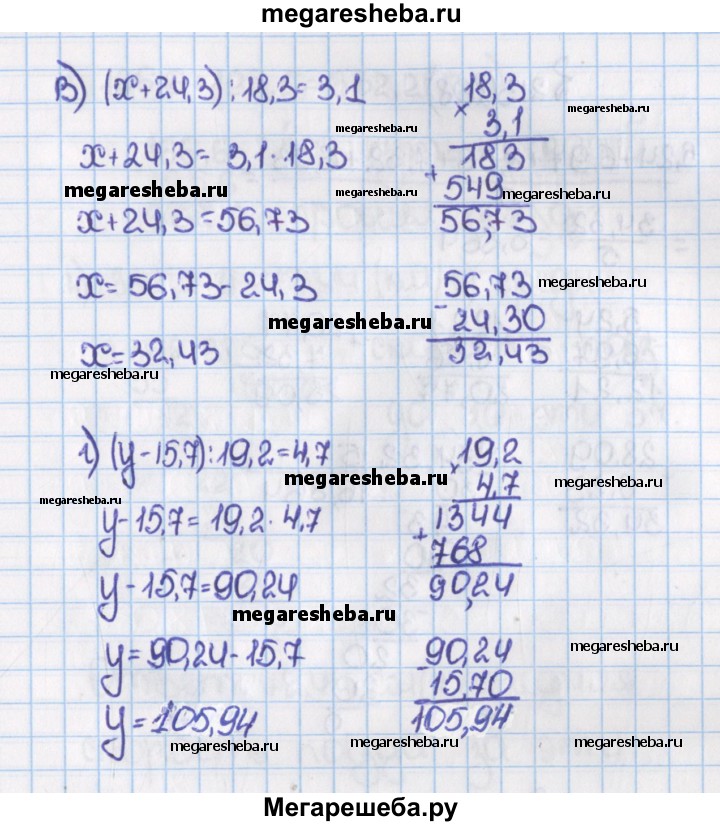 megaresheba.ru
в) (x+24,3):18,3=3,1
x+24,3= 3,1·18,3
x+24,3=56,73
x= 56,73-24,3
x=32,43
18,3
×
3,1
183
+
549
56,73
56,73
-
24,30
32,43
megaresheba.ru
megaresheba.ru
megaresheba.ru
megaresheba.ru
megaresheba.ru
megaresheba.ru
megaresheba.ru
megaresheba.ru
г) (y-15,7):19,2=4,7
y-15,7= 19,2·4,7
y-15,7=90,24
y=90,24-15,7
y=105,94
19,2
×
4,7
1344
+
768
90,24
90,24
15,70
105,94
megaresheba.ru
megaresheba.ru
megaresheba.ru
megaresheba.ru
megaresheba.ru
megaresheba.ru
megaresheba.ru
megaresheba.ru
megaresheba.ru
Мегарешеба.ру